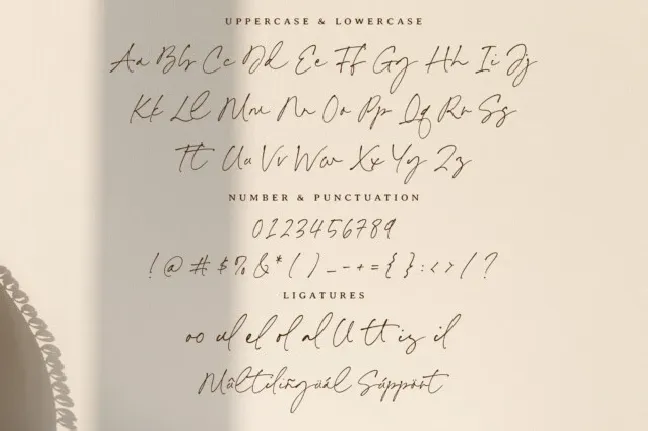 UPPERCASE & LOWERCASE
Aa Bb Cc Dd Ee Ff Gg Hh Ii Jj
Kk Ll Mm Nn Oo Pp Qq Rr Ss
Tt Uu Vv Ww Xx Yy Zz
NUMBER & PUNCTUATION
0123456789
! @ # $ % & * ( ) _ - + = { } : < > / ?
LIGATURES
oo ul el ol al ll tt is il
Mâltilingüál Sáppört